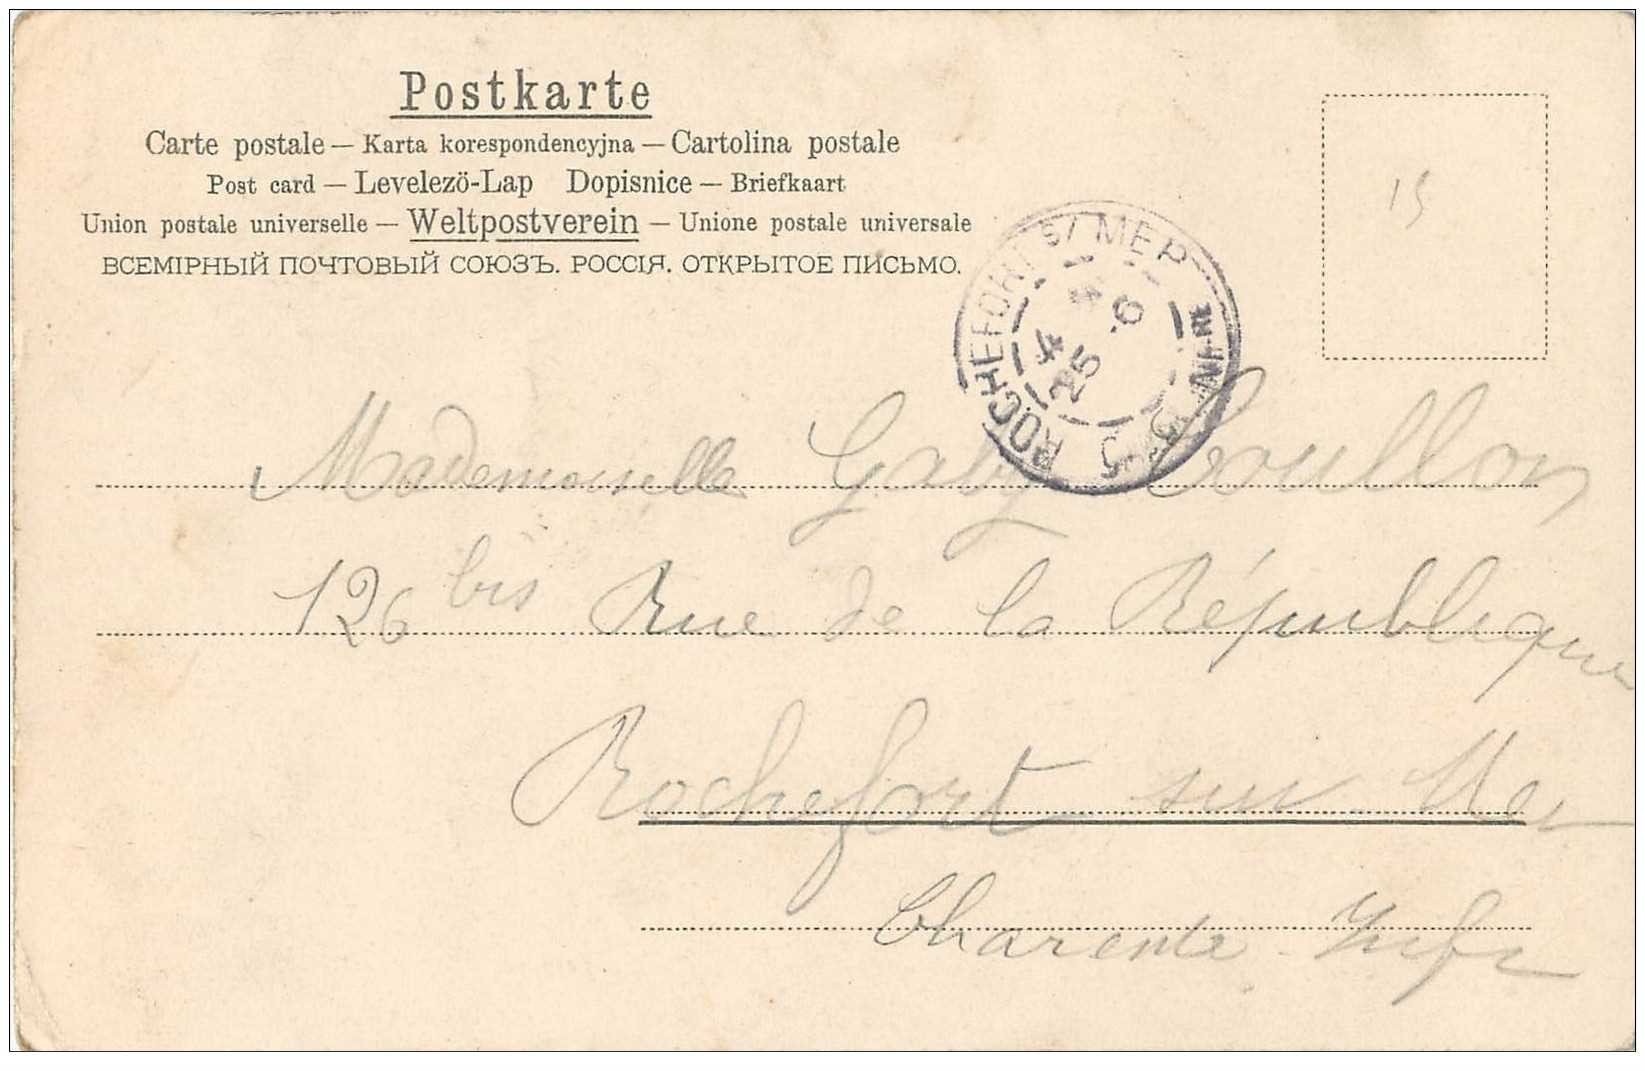 Postkarte
Carte postale — Karta korespondencyjna — Cartolina postale
Post card — Levelezö-Lap Dopisnice — Briefkaart
Union postale universelle — Weltpostverein — Unione postale universale
ВСЕМІРНЫЙ ПОЧТОВЫЙ СОЮЗЪ. РОССІЯ. ОТКРЫТОЕ ПИСЬМО.
15
ROCHEFORT S/ MER
4
25 -6
Mademoiselle Gaby Coullon
126 bis Rue de la République
Rochefort sur Mer
Charente Infre